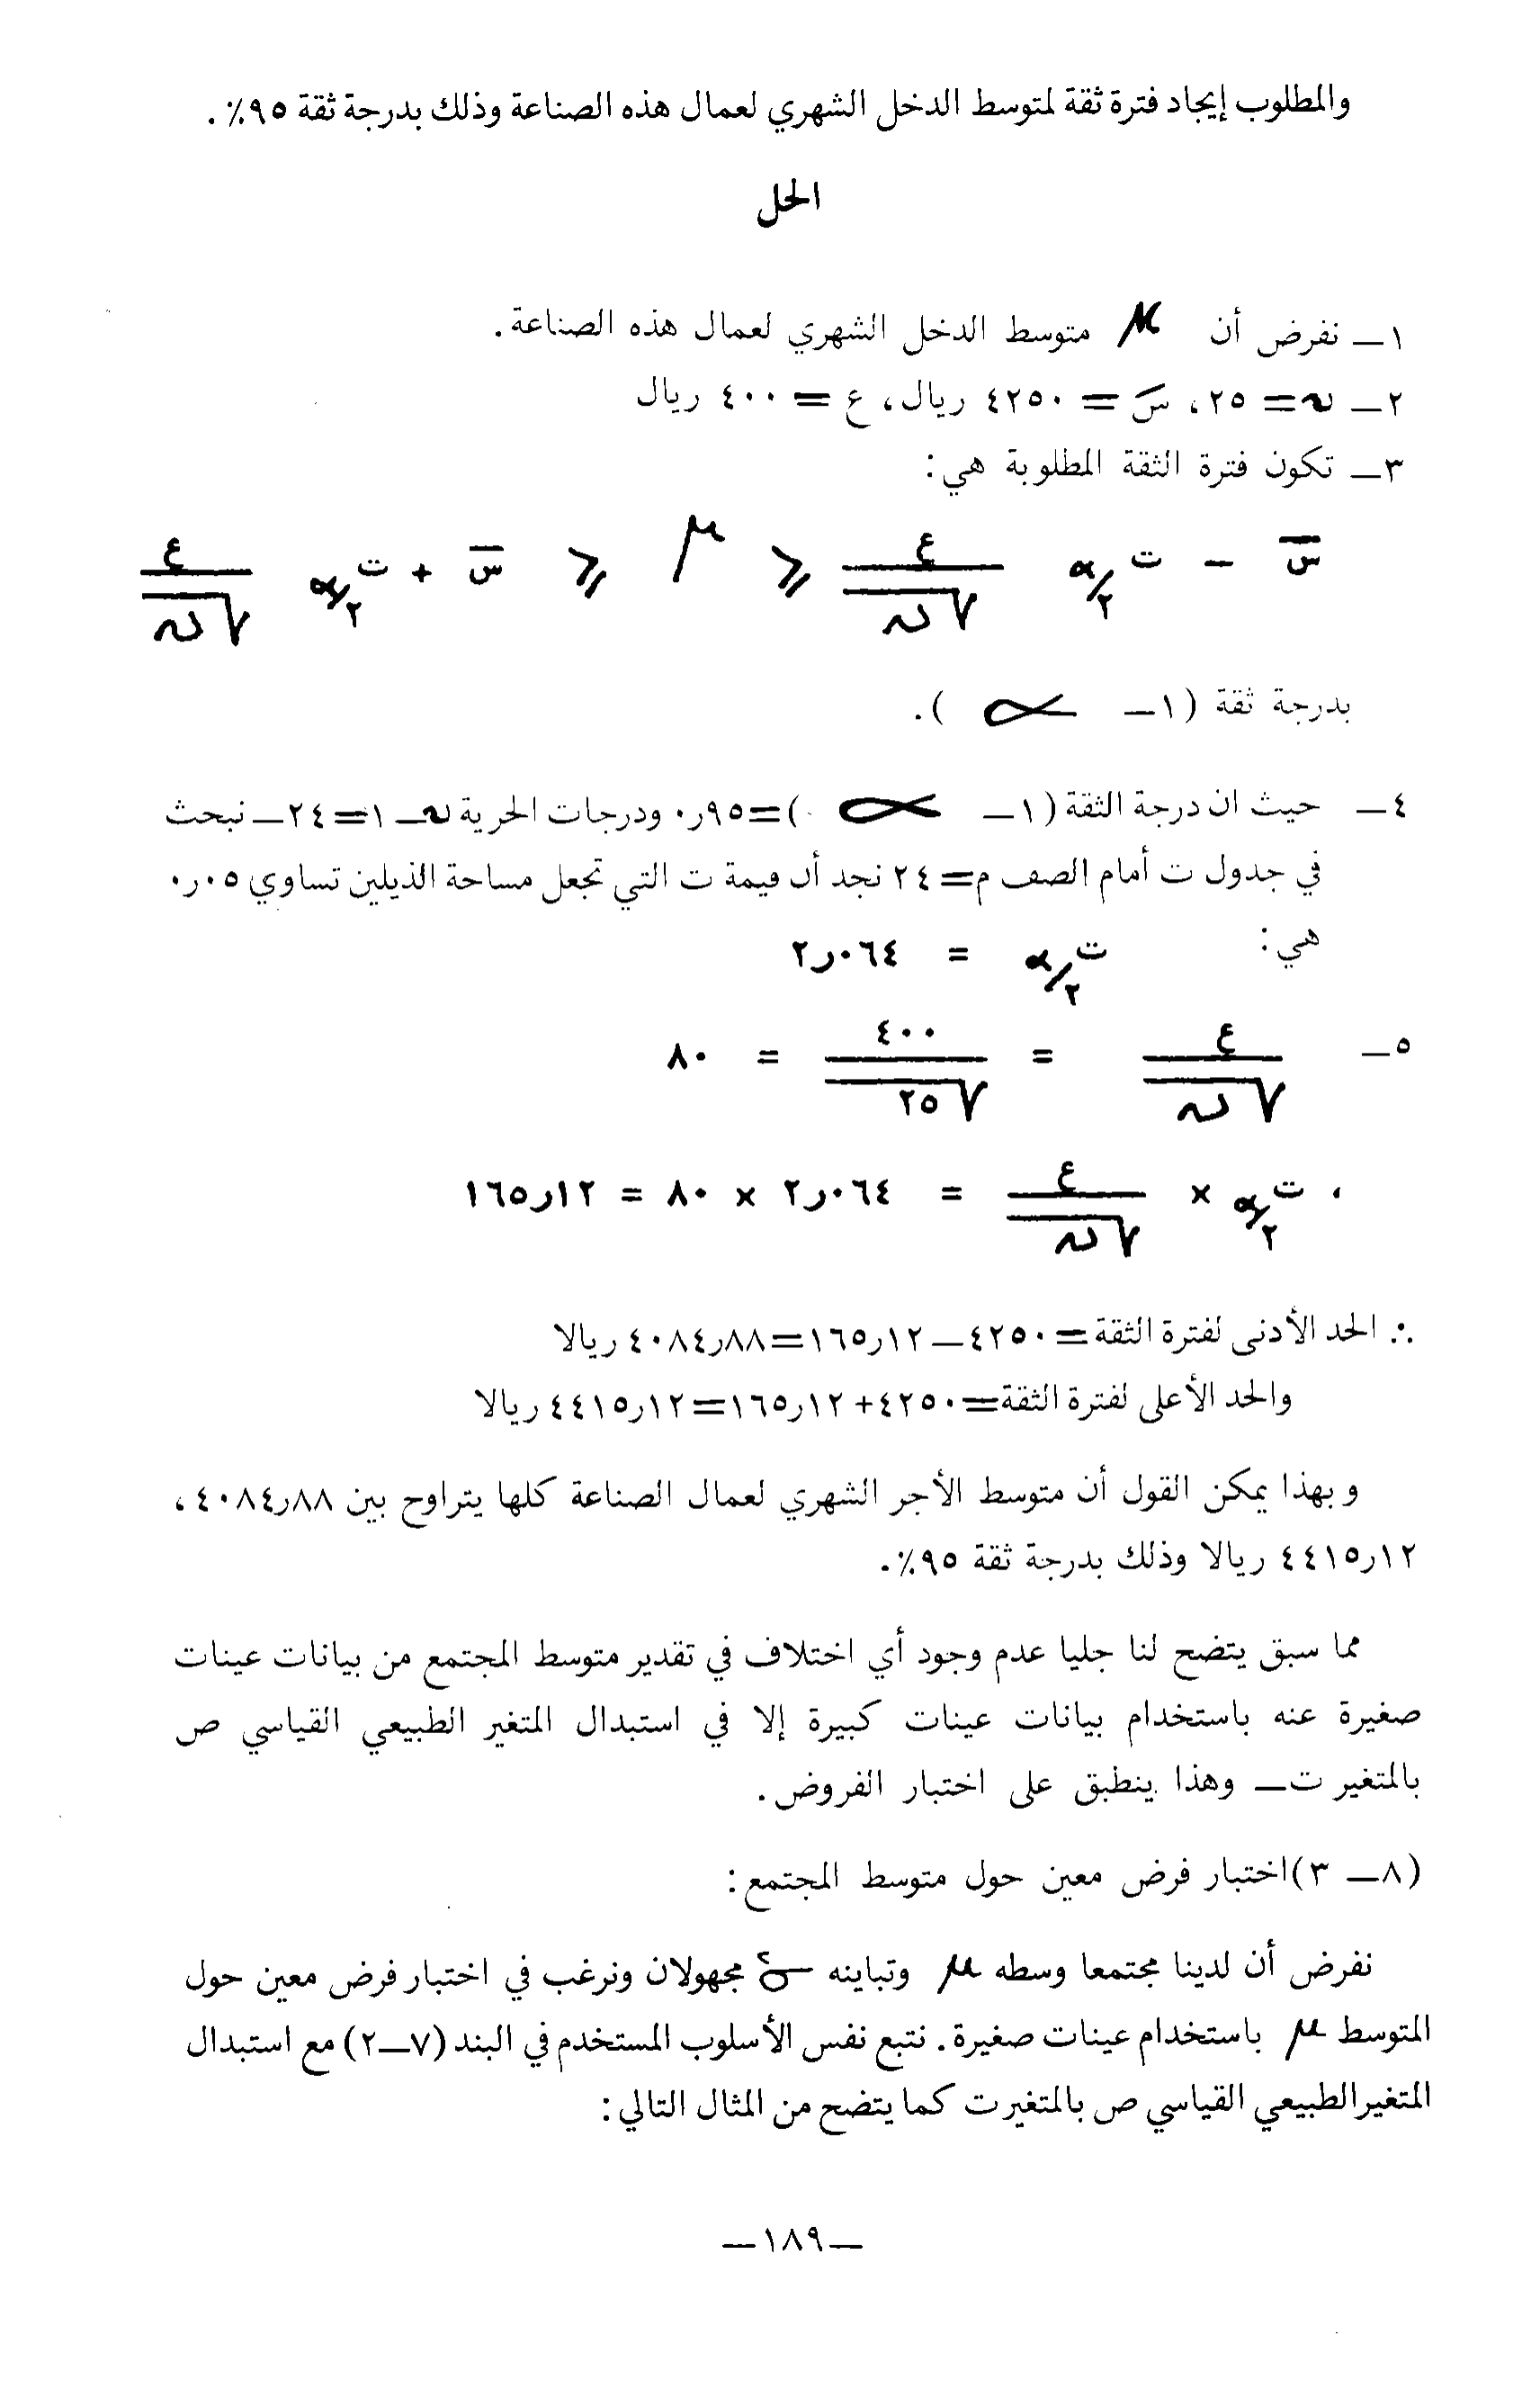 والمطلوب إيجاد فترة ثقة لمتوسط الدخل الشهري لعمال هذه الصناعة وذلك بدرجة ثقة ٩٥٪ .
الحل
١— نفرض أن μ متوسط الدخل الشهري لعمال هذه الصناعة.
٢— ن = ٢٥، سَ = ٤٢٥٠ ريال، ع = ٤٠٠ ريال
٣— تكون فترة الثقة المطلوبة هي:
س̄ − ت α/٢ ع/√ن ≥ μ ≥ س̄ + ت α/٢ ع/√ن
بدرجة ثقة (١— α ).
٤— حيث ان درجة الثقة (١— α )=٩٥ر٠ ودرجات الحرية ن—١=٢٤— نبحث
في جدول ت أمام الصف م=٢٤ نجد أن قيمة ت التي تجعل مساحة الذيلين تساوي ٠٥ر٠
هي: ت α/٢ = ٠٦٤ر٢
٥— ع/√ن = ٤٠٠/√٢٥ = ٨٠
، ت α/٢ × ع/√ن = ٠٦٤ر٢ × ٨٠ = ١٢ر١٦٥
∴ الحد الأدنى لفترة الثقة=٤٢٥٠—١٢ر١٦٥=٨٨ر٤٠٨٤ ريالا
والحد الأعلى لفترة الثقة=٤٢٥٠+١٢ر١٦٥=١٢ر٤٤١٥ ريالا
وبهذا يمكن القول أن متوسط الأجر الشهري لعمال الصناعة كلها يتراوح بين ٨٨ر٤٠٨٤،
١٢ر٤٤١٥ ريالا وذلك بدرجة ثقة ٩٥٪.
مما سبق يتضح لنا جليا عدم وجود أي اختلاف في تقدير متوسط المجتمع من بيانات عينات
صغيرة عنه باستخدام بيانات عينات كبيرة إلا في استبدال المتغير الطبيعي القياسي ص
بالمتغير ت— وهذا ينطبق على اختبار الفروض.
(٨— ٣)اختبار فرض معين حول متوسط المجتمع:
نفرض أن لدينا مجتمعا وسطه μ وتباينه σ٢ مجهولان ونرغب في اختبار فرض معين حول
المتوسط μ باستخدام عينات صغيرة. نتبع نفس الأسلوب المستخدم في البند (٧—٢) مع استبدال
المتغير الطبيعي القياسي ص بالمتغير ت كما يتضح من المثال التالي:
—١٨٩—